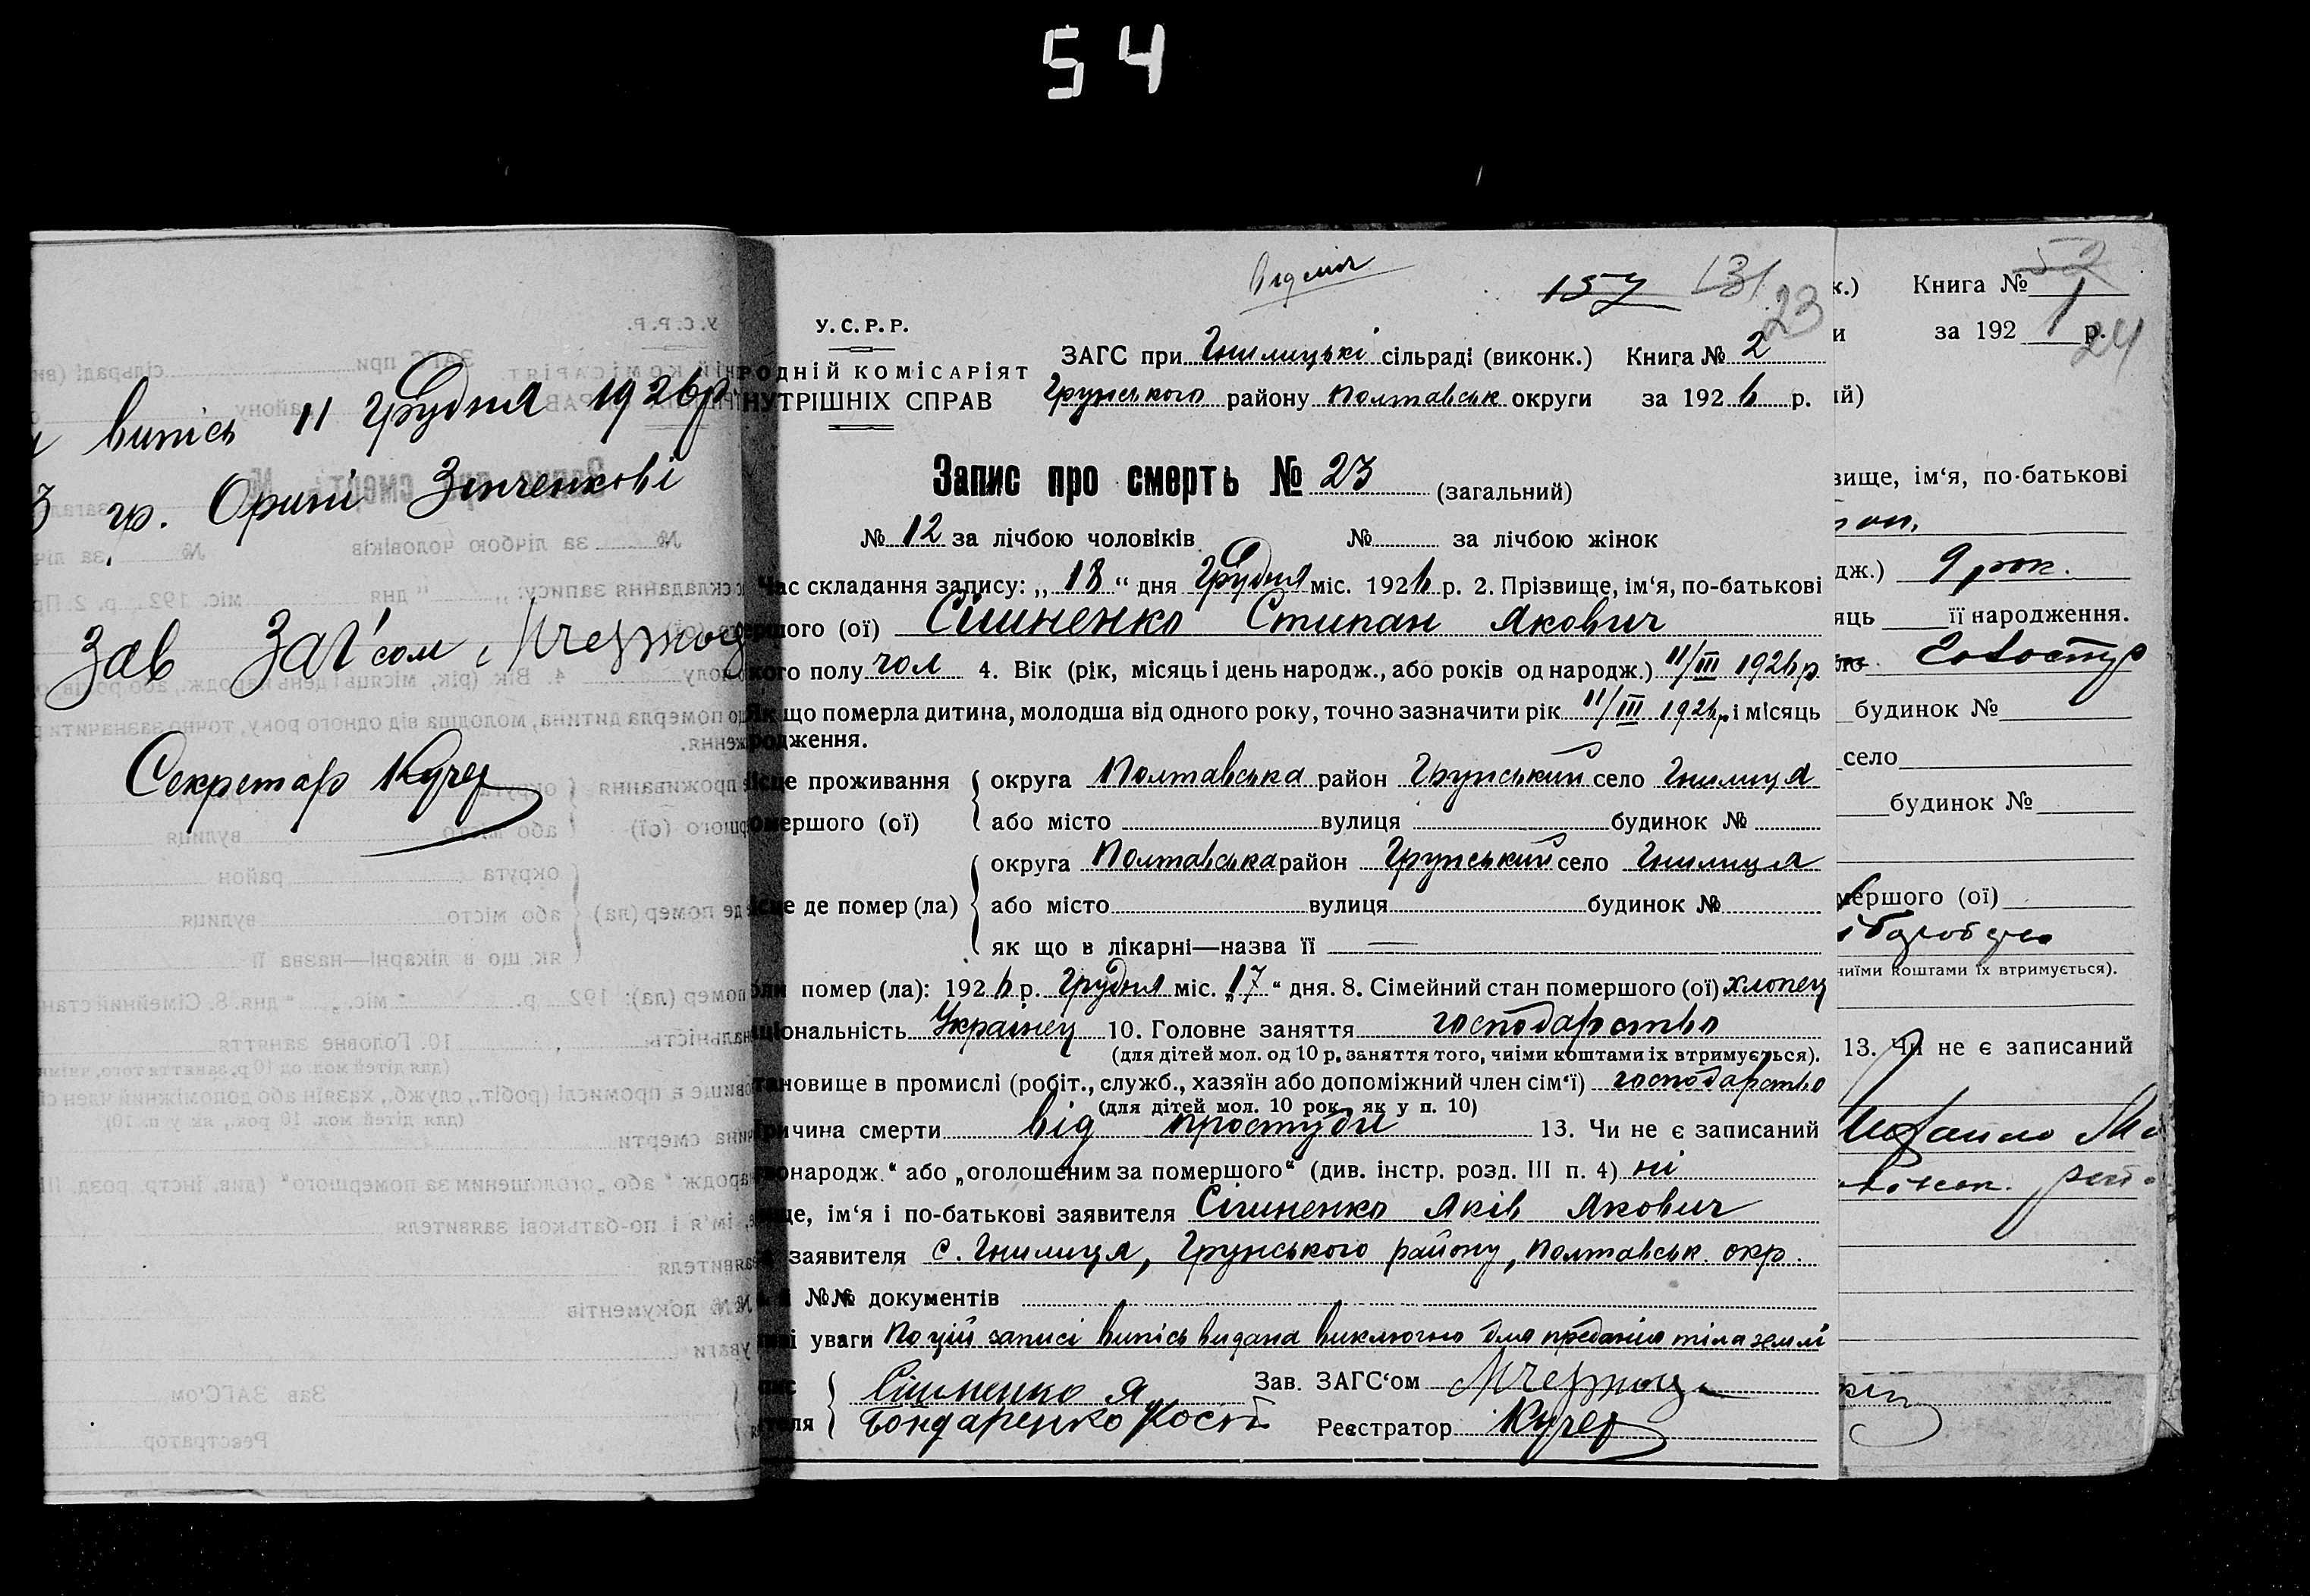 54
випісь 11 Грудня 1926 р.
гр. Орині Зінченкові
Зав ЗАГ'сом
Секретар Кучер
157 131 23
У.С.Р.Р.
ЗАГС при Гнилицькі сільраді (виконк.) Книга № 2
РОДНІЙ КОМІСАРІЯТ
НУТРІШНІХ СПРАВ
Грунського району Полтавськ округи за 1926 р.
Запис про смерть № 23 (загальний)
№ 12 за лічбою чоловіків № за лічбою жінок
Час складання запису: „18“ дня Грудня міс. 1926 р. 2. Прізвище, ім‘я, по-батькові
мершого (ої) Сішненко Степан Якович
кого полу чол 4. Вік (рік, місяць і день народж., або років од народж.) 11/III 1926 р
Як що померла дитина, молодша від одного року, точно зазначити рік 11/III 1926 р і місяць
родження.
ісце проживання округа Полтавська район Грунський село Гнилиця
омершого (ої) або місто вулиця будинок №
округа Полтавська район Грунський село Гнилиця
ісце де помер (ла) або місто вулиця будинок №
як що в лікарні—назва її
оли помер (ла): 1926 р. Грудня міс. „17“ дня. 8. Сімейний стан помершого (ої) хлопец
ціональність Українец 10. Головне заняття господарство
(для дітей мол. од 10 р. заняття того, чиїми коштами їх втримується).
тановище в промислі (робіт., служб., хазяїн або допоміжний член сім‘ї) господарство
(для дітей мол. 10 рок., як у п. 10)
ричина смерти від простуди 13. Чи не є записаний
вонародж.“ або „оголошеним за помершого“ (див. інстр. розд. III п. 4) ні
ще, ім‘я і по-батькові заявителя Сішненко Яків Якович
заявителя с. Гнилиця, Грунського району, Полтавськ. окр.
№№ документів
ві уваги По цій записі випісь видана виключно для предання тіла землі
пис Сішненко Я. Зав. ЗАГС‘ом
теля Бондаренко Кость Реєстратор Кучер
к.) Книга № 52
и за 192 1 р.
24
ій)
вище, ім‘я, по-батькові
дж.) 9 рок.
яць її народження.
будинок №
село
будинок №
мершого (ої)
чиїми коштами їх втримується).
13. Чи не є записаний